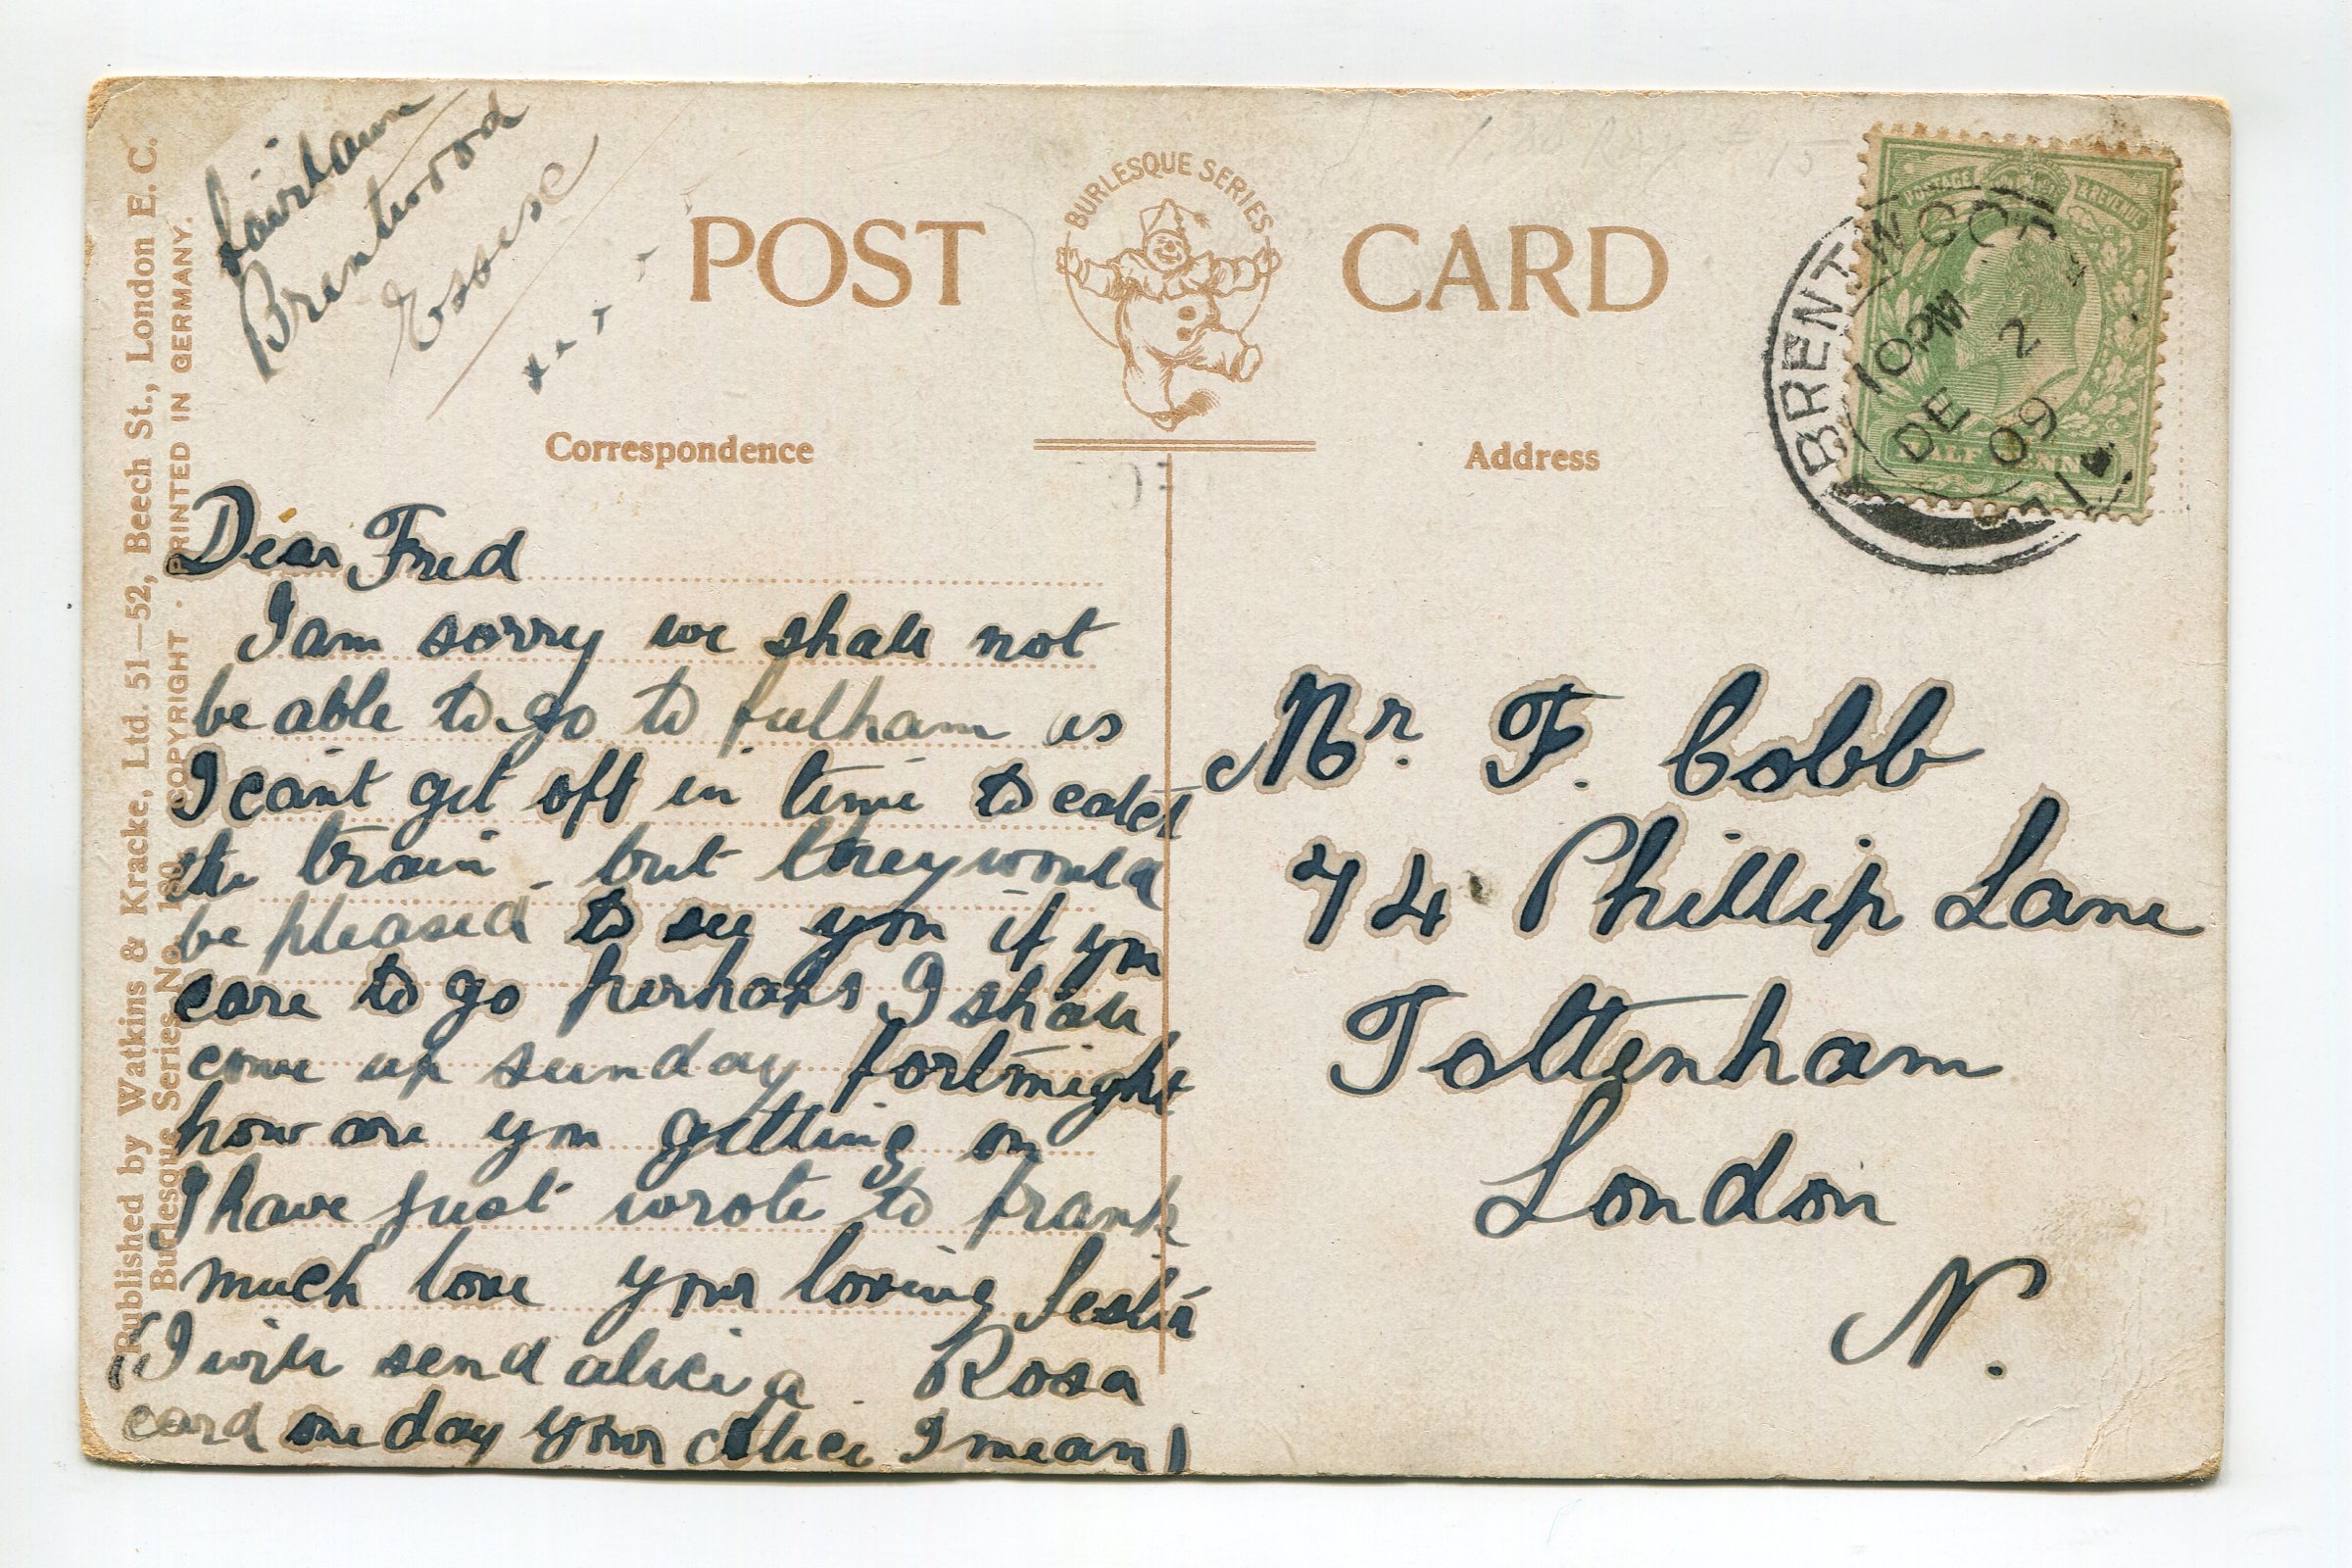 Fairlawn
Brentwood
Essex
POST CARD
BURLESQUE SERIES
Correspondence
Address
Published by Watkins & Kracke, Ltd. 51–52, Beech St., London E. C.
Burlesque Series No. 180. COPYRIGHT · PRINTED IN GERMANY.
POSTAGE & REVENUE
HALF PENNY
BRENTWOOD
10 PM
DE 2
09
Dear Fred
I am sorry we shall not
be able to go to fulham as
I can't get off in time to catch
the train - but they would
be pleased to see you if you
care to go perhaps I shall
come up sunday fortnight
how are you getting on
I have just wrote to frank
much love your loving Sester
Rosa
(I will send alice a
card one day your alice I mean)
Mr. F. Cobb
74 Phillip Lane
Tottenham
London
N.